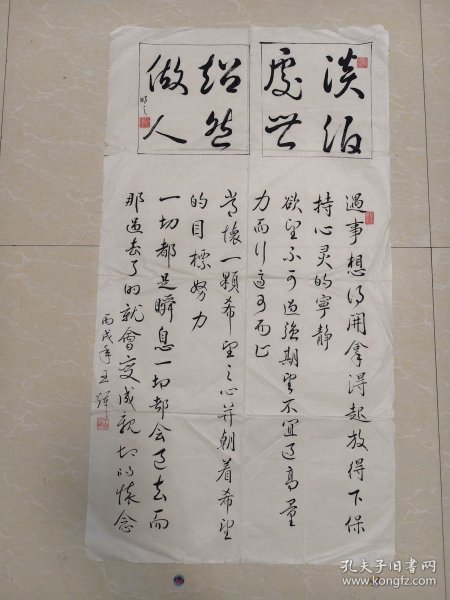 淡泊
處世
超然
做人
遇事想得開拿得起放得下保
持心灵的寧静
欲望不可过強期望不宜过高量
力而行适可而止
常懷一顆希望之心并朝着希望
的目標努力
一切都是瞬息一切都会过去而
那过去了的就會变成親切的懷念
丙戌年王
孔夫子旧书网
www.kongfz.com